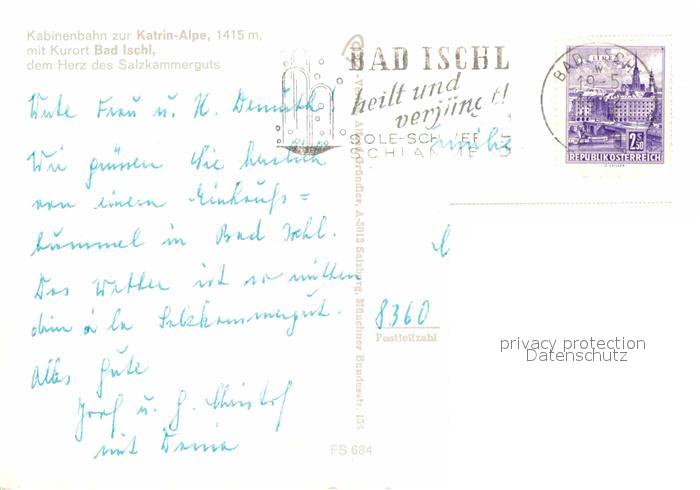 Kabinenbahn zur Katrin-Alpe, 1415 m,
mit Kurort Bad Ischl,
dem Herz des Salzkammerguts
BAD ISCHL
heilt und
verjüngt!
SOLE-SCHWEFEL
SCHLAMM
BAD ISCHL
REPUBLIK ÖSTERREICH
2.50
Familie
Frau u. H. Demuth!
Wir grüssen Sie herzlich
von einem Einkaufs=
bummel in Bad Ischl.
Das Wetter ist so mitten
drin á la Salzkammergut.
Alles Gute
u.
mit
8360
Postleitzahl
A-5013 Salzburg, Münchner Bundesstr. 153
FS 684
privacy protection
Datenschutz